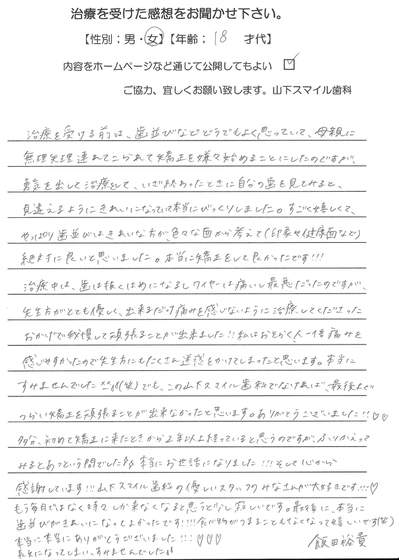 治療を受けた感想をお聞かせ下さい。
【性別；男・女】【年齢；18 才代】
内容をホームページなど通じて公開してもよい ☑
ご協力、宜しくお願い致します。山下スマイル歯科
治療を受ける前は、歯並びなどどうでもよく思っていて、母親に
無理矢理連れてこられて矯正を嫌々始めることにしたのですが、
勇気を出して治療をして、いざ終わったときに自分の歯を見てみると、
見違えるようにきれいになっていて本当にびっくりしました。すごく嬉しくて、
やっぱり歯並びはきれいな方が、色々な面から考えて(印象や健康面など)
絶対に良いと思いました。本当に矯正をして良かったです!!!
治療中は、歯は抜くはめになるしワイヤーは痛いし最悪だったのですが、
先生方がとても優しく、出来るだけ痛みを感じないように治療してくださった
おかげで我慢して頑張ることが出来ました!!私はおそらく人一倍痛みを
感じやすかったので先生方にもたくさん迷惑をかけてしまったと思います。本当に
すみませんでした(笑)でも、この山下スマイル歯科でなければ、最後まで
つらい矯正を頑張ることが出来なかったと思います。ありがとうございました!!♡♡
多分、初めて矯正に来たときから2年以上経っていると思うのですが、ふりかえって
みるとあっという間でした 本当にお世話になりました!!!そして心から
感謝しています!!!山下スマイル歯科の優しいスタッフのみなさんが大好きです!!!♡
もう毎月ではなく時々しか来なくなると思うと少し寂しいです。最後に、本当に
歯並びがきれいになってよかったです!!!!食べ物がつまることもなくなって嬉しいです(笑)
本当に本当にありがとうございました!!!♡♡♡♡
長文になってしまい、すみませんでした
飯田裕貴